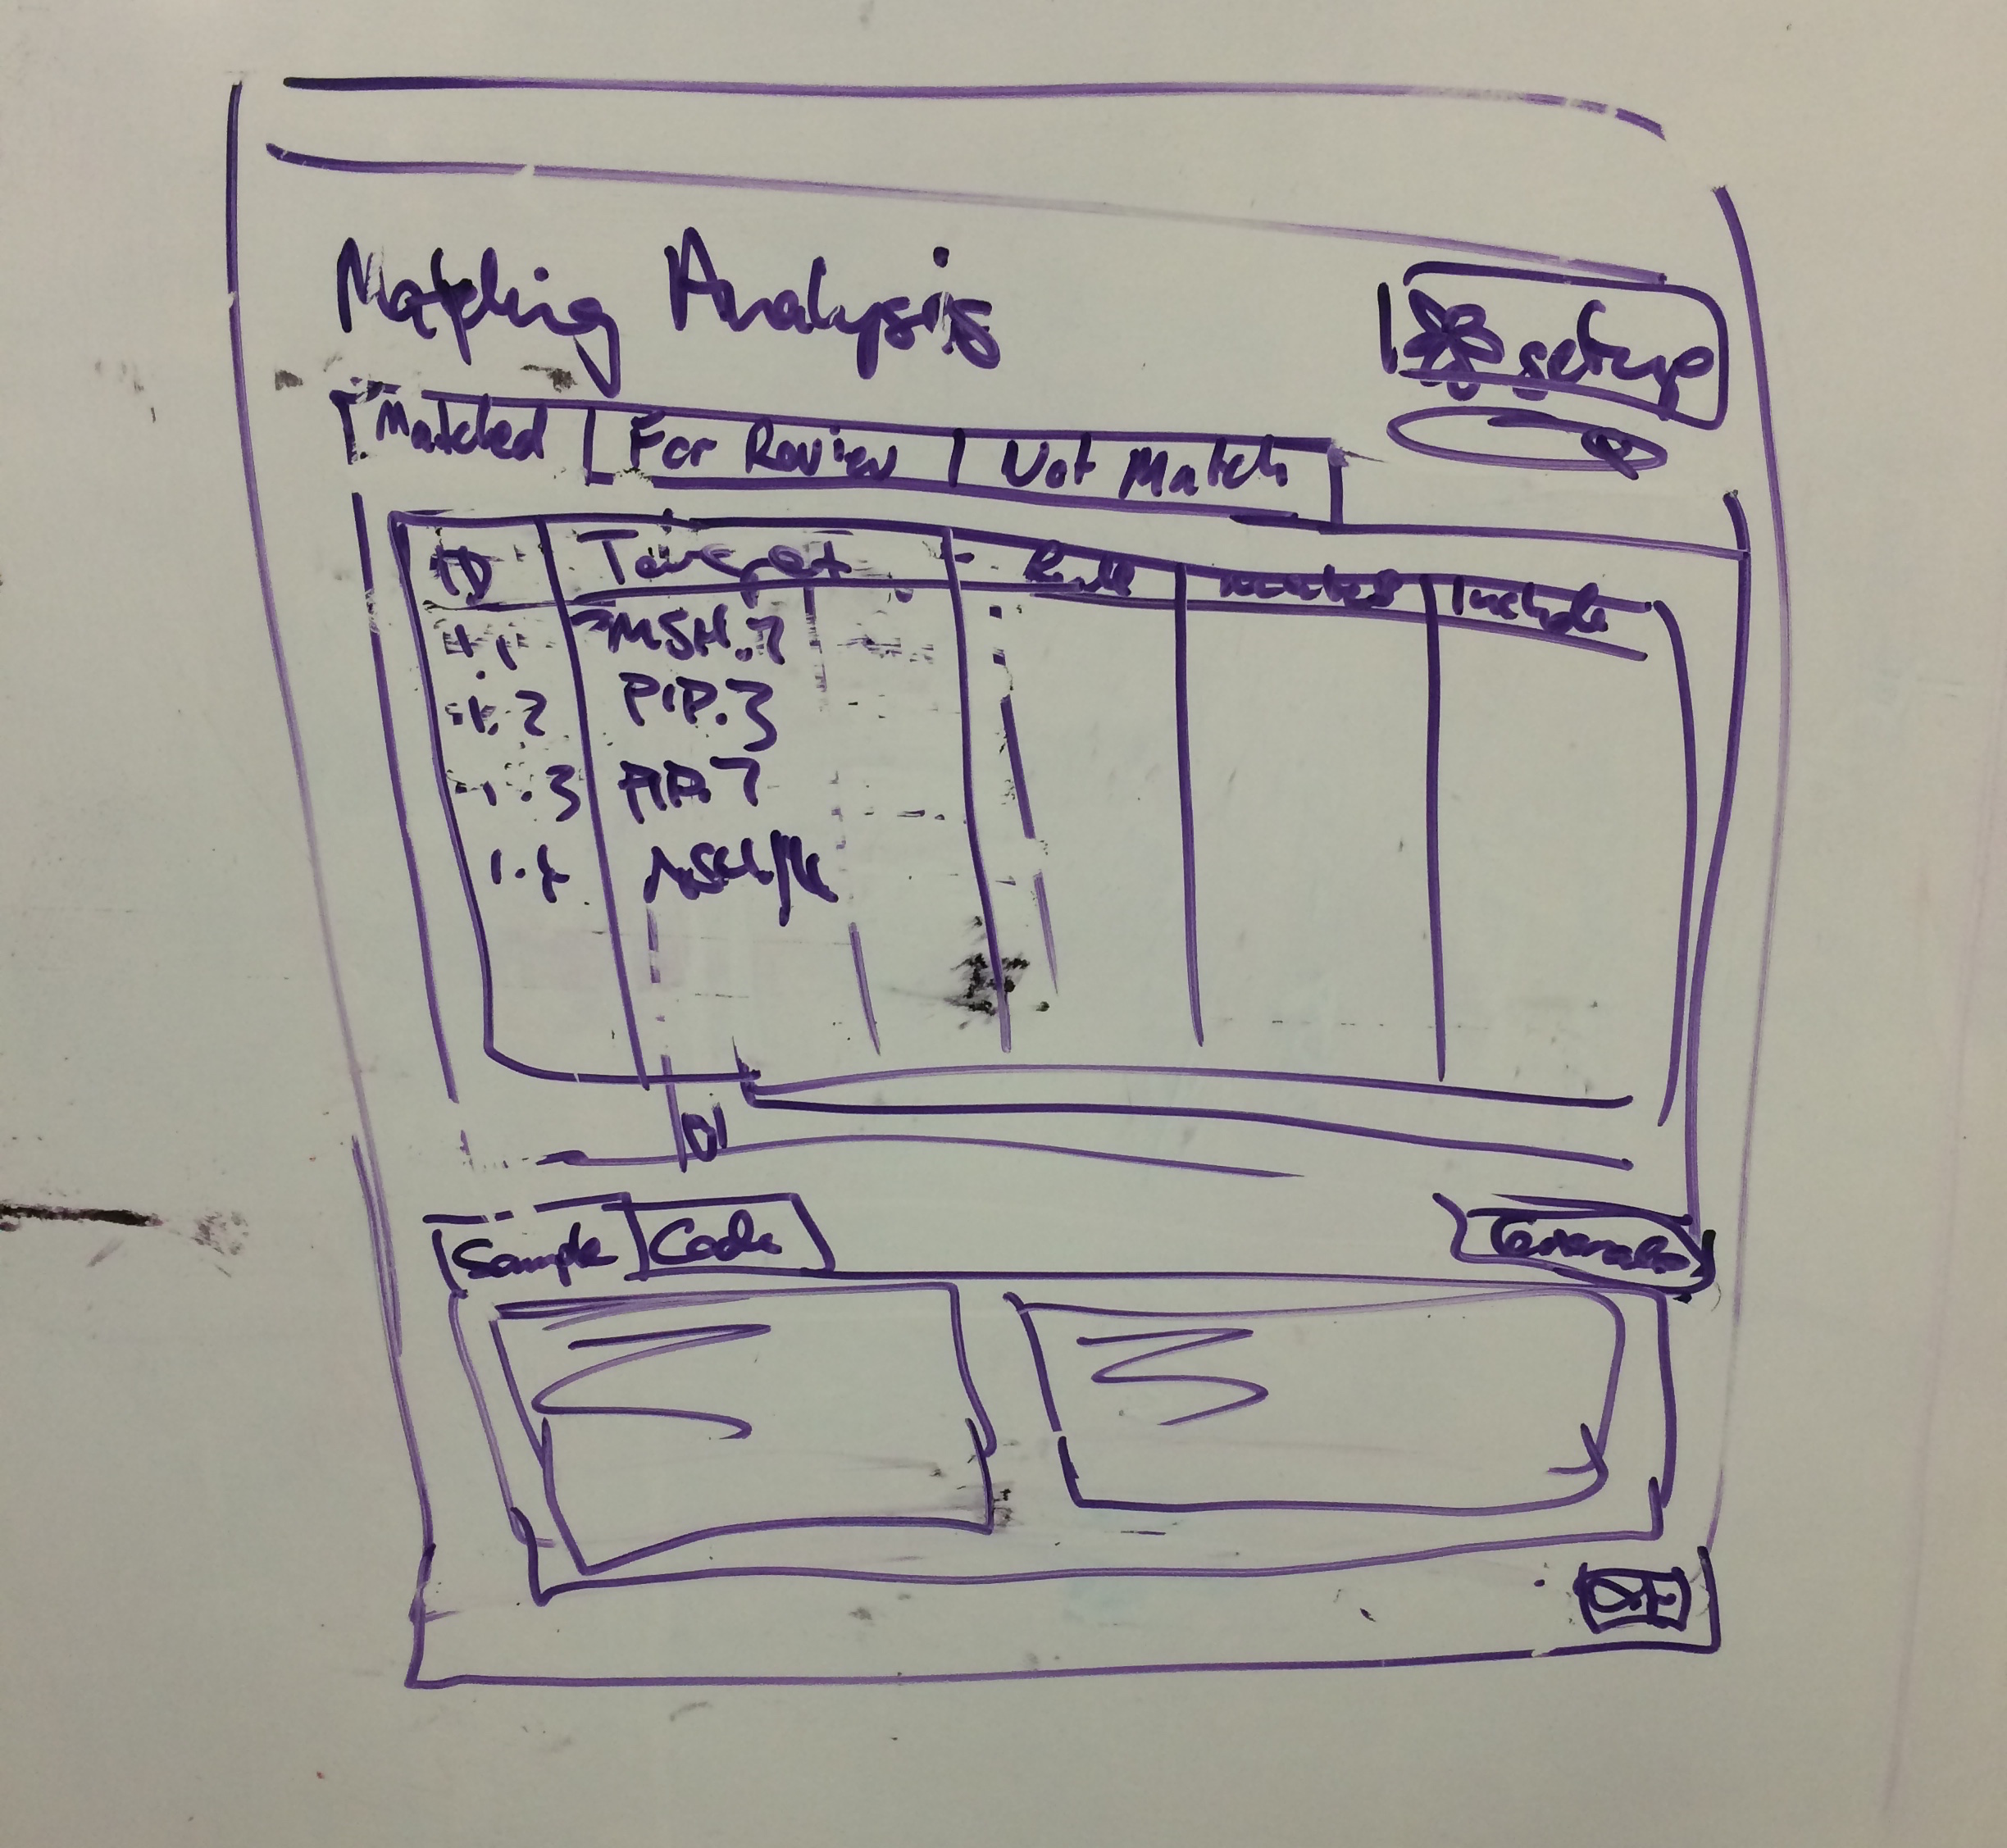 Mapping Analysis
setup
Matched For Review Not Match
ID Target Rule Include
1.1 MSH.7
1.2 PID.3
1.3 PID.7
Sample Code Generate